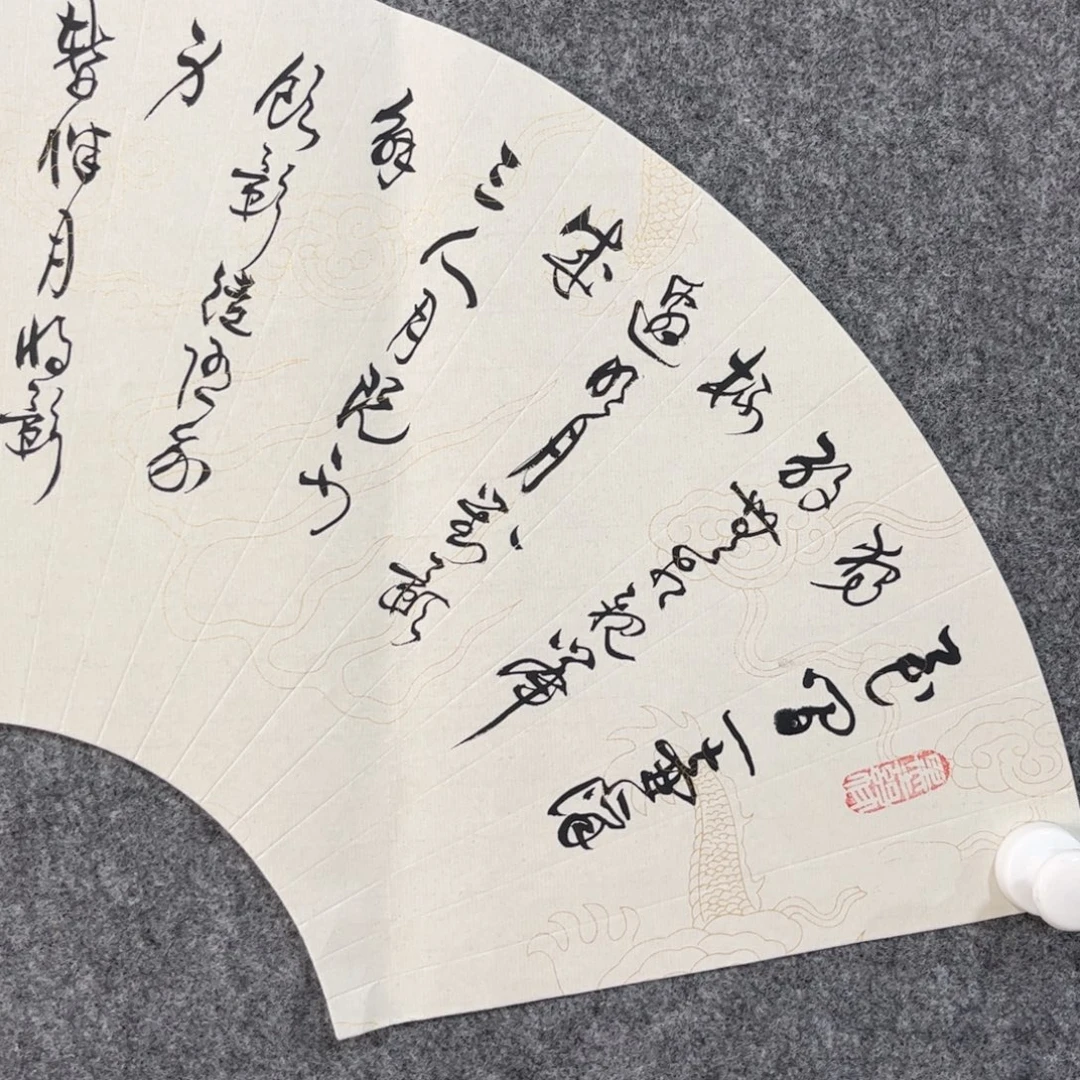 花間一壺酒
獨
酌無相親舉
杯
邀明月對影
成
三人月既不
解
飲影徒隨我
身
暫伴月將影